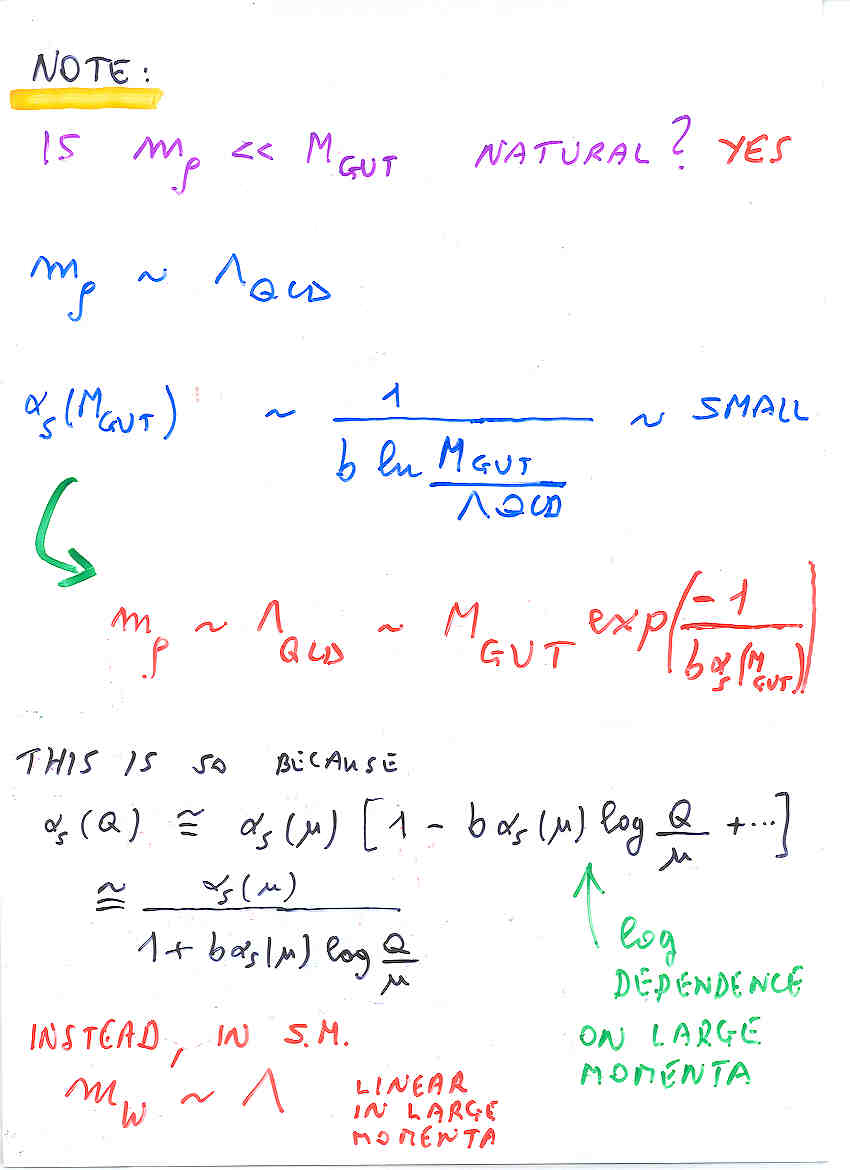 NOTE:
IS m_ρ << M_GUT NATURAL? YES
m_ρ ~ Λ_QCD
α_s(M_GUT) ~ 1 / (b ln M_GUT/Λ_QCD) ~ SMALL
m_ρ ~ Λ_QCD ~ M_GUT exp(-1 / (b α_s(M_GUT)))
THIS IS SO BECAUSE
α_s(Q) ≅ α_s(μ) [1 - b α_s(μ) log Q/μ + ...]
≅ α_s(μ) / (1 + b α_s(μ) log Q/μ)
log
DEPENDENCE
ON LARGE
MOMENTA
INSTEAD, IN S.M.
m_W ~ Λ
LINEAR
IN LARGE
MOMENTA